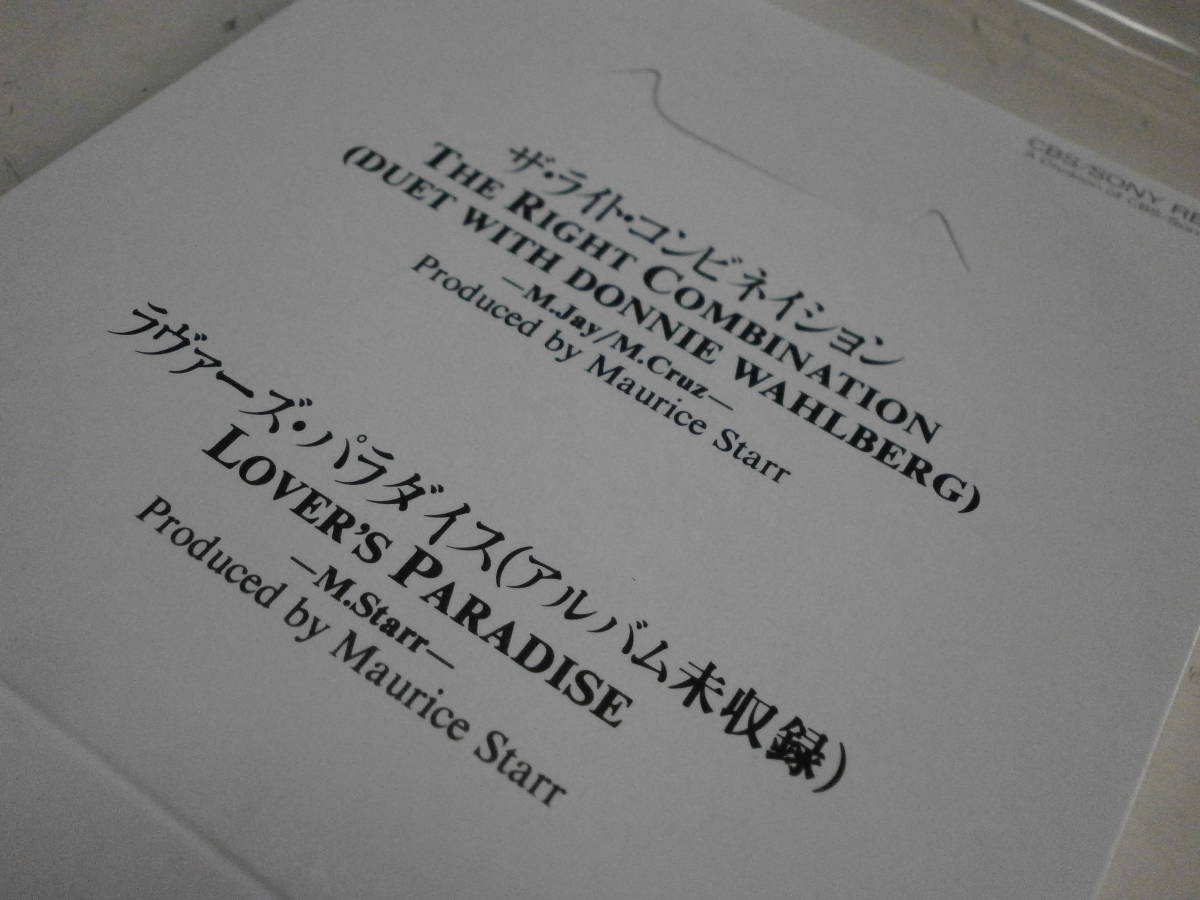 CBS/SONY
A Division of CBS/Sony
ザ・ライト・コンビネイション
THE RIGHT COMBINATION
(DUET WITH DONNIE WAHLBERG)
—M.Jay/M.Cruz—
Produced by Maurice Starr
ラヴァーズ・パラダイス(アルバム未収録)
LOVER'S PARADISE
—M.Starr—
Produced by Maurice Starr